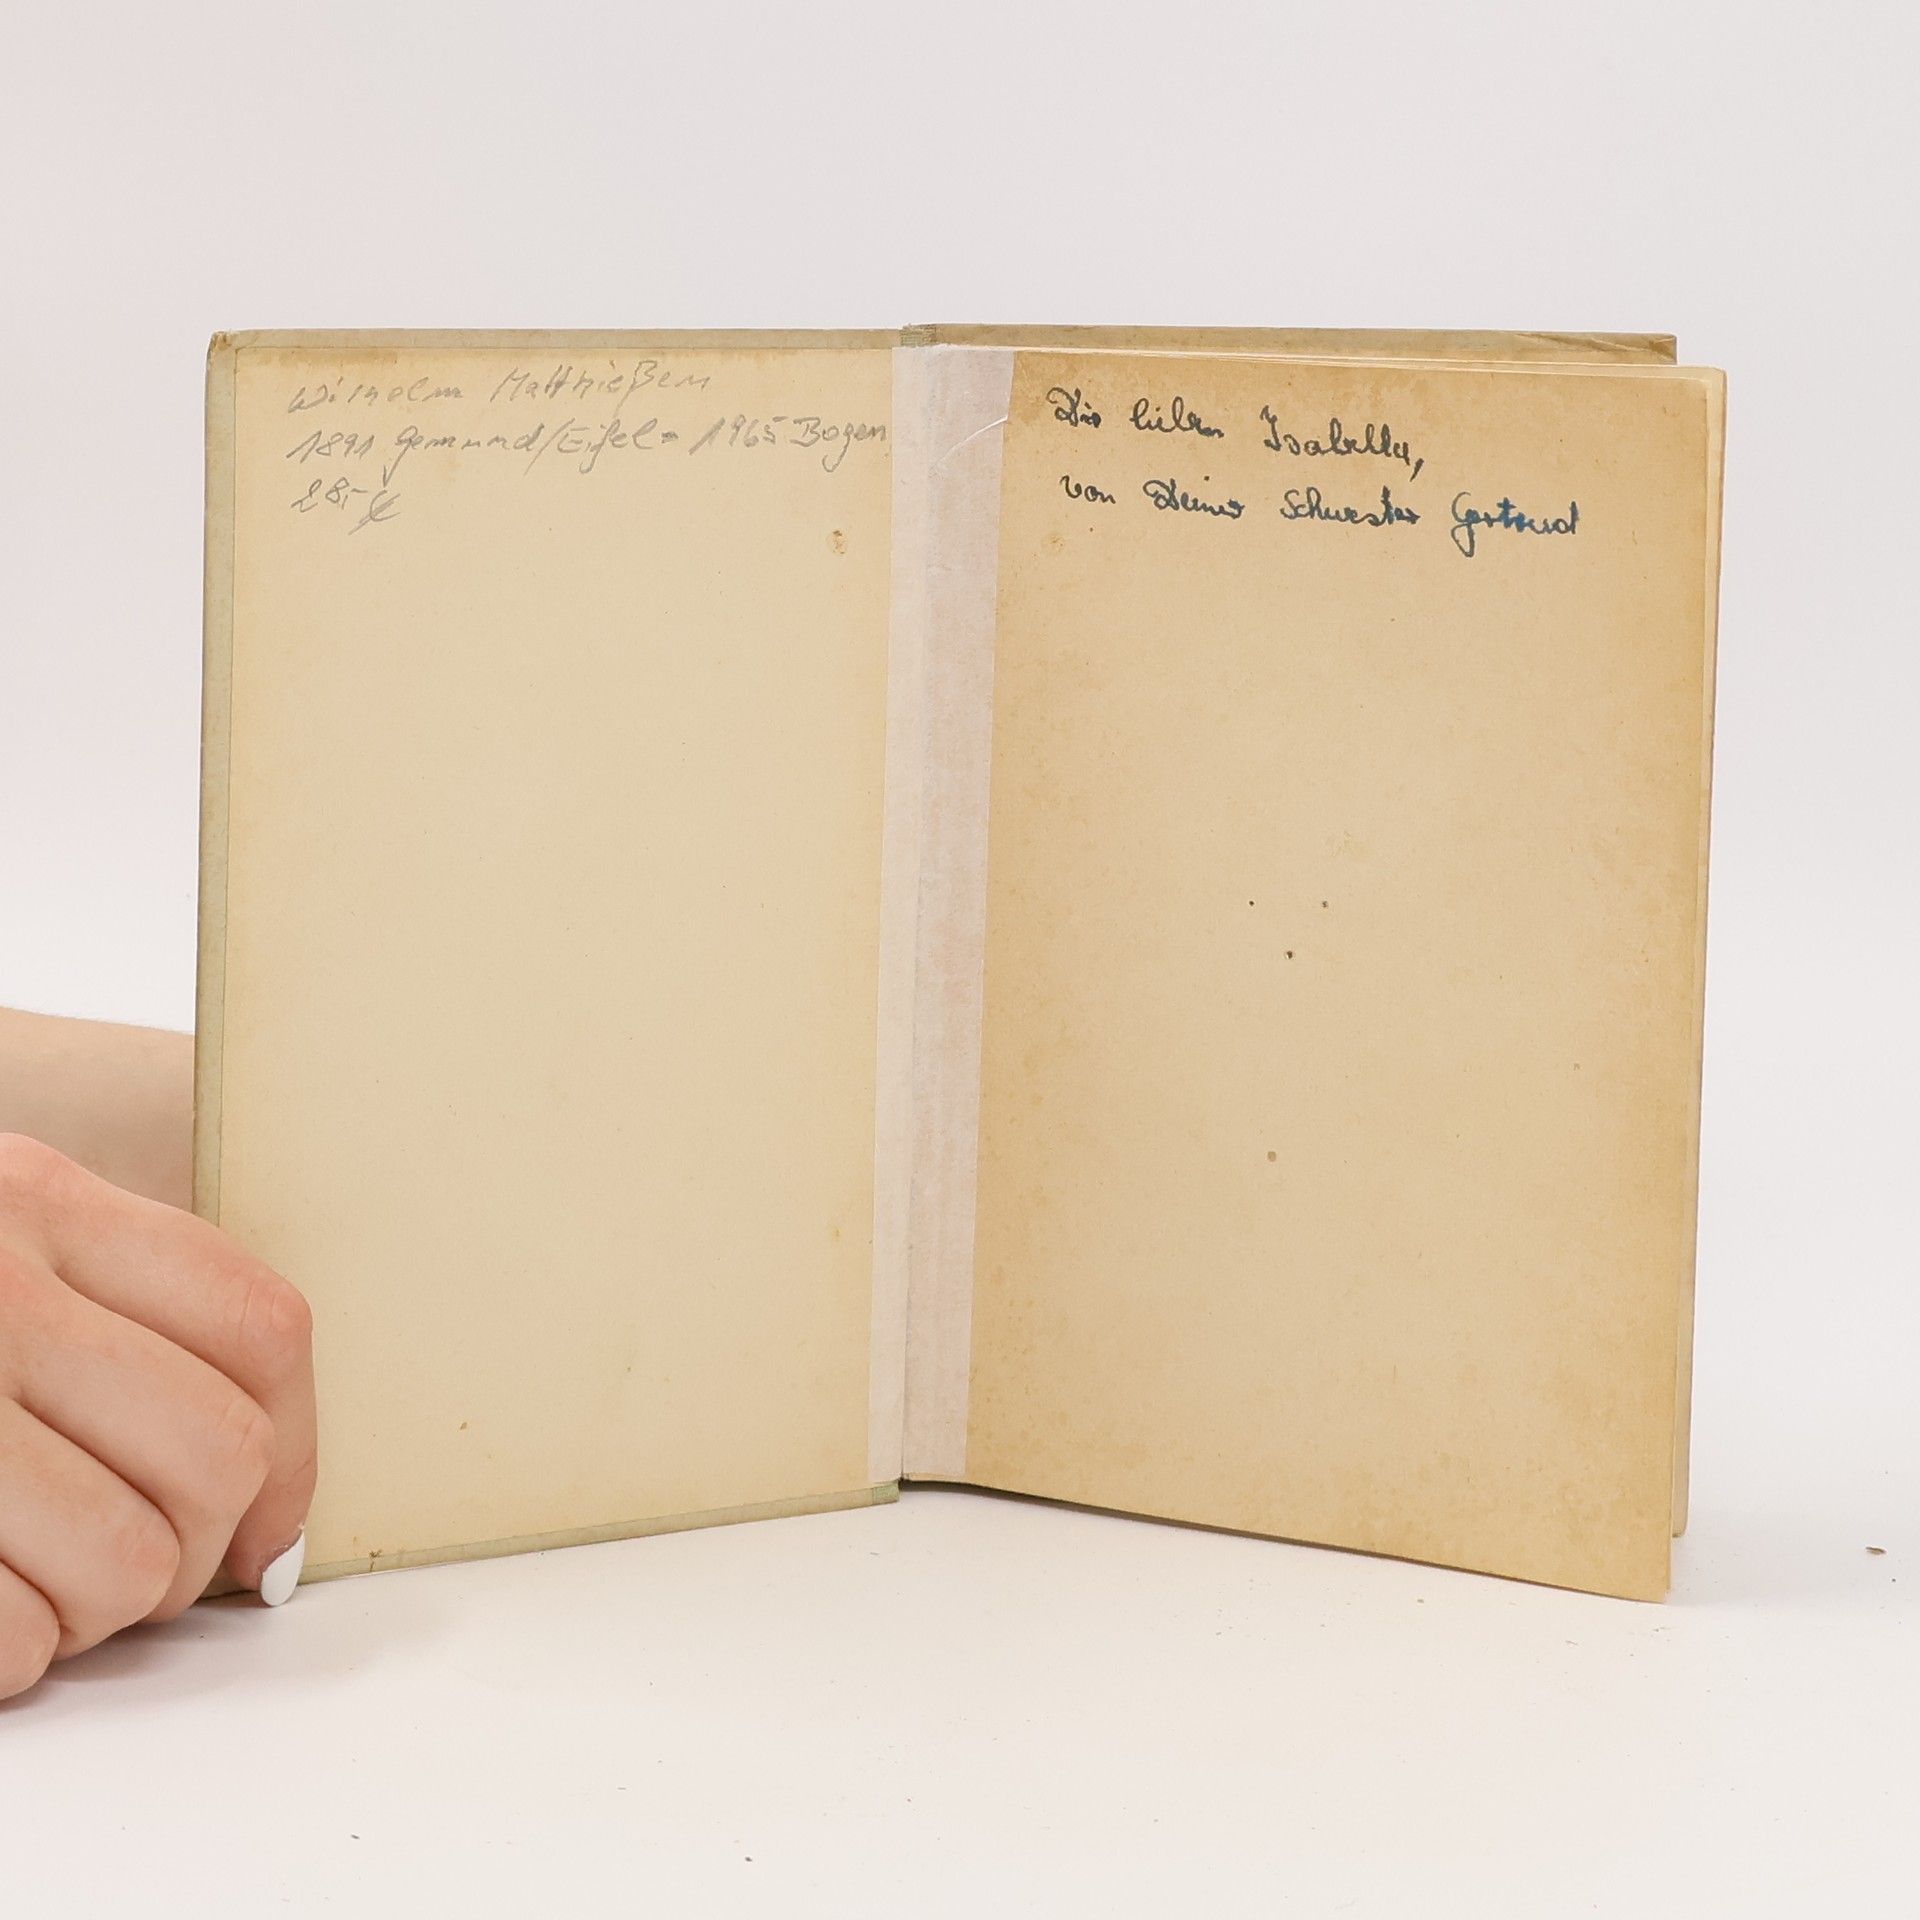 Wilhelm Matthießen
1891 Gemünd/Eifel - 1965 Bogen
28,- €
Die lieben Isabella,
von Deiner Schwester Gertrud